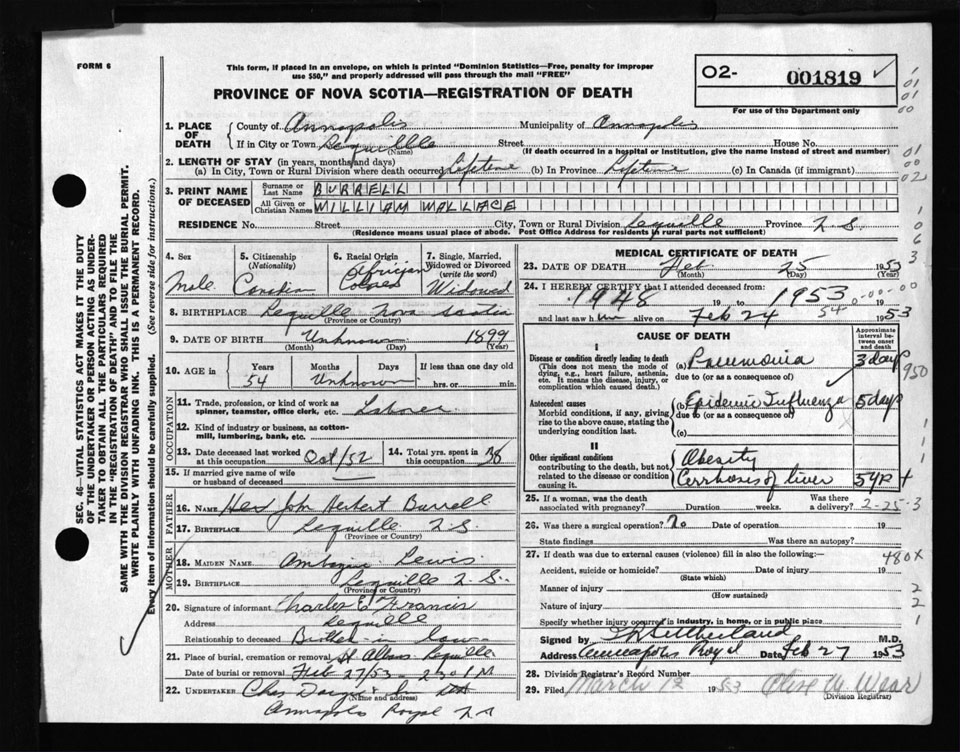 FORM 6
This form, if placed in an envelope, on which is printed "Dominion Statistics—Free, penalty for improper
use $50," and properly addressed will pass through the mail "FREE"
PROVINCE OF NOVA SCOTIA—REGISTRATION OF DEATH
O2- 001819 ✓
For use of the Department only
SEC. 46—VITAL STATISTICS ACT MAKES IT THE DUTY
OF THE UNDERTAKER OR PERSON ACTING AS UNDER-
TAKER TO OBTAIN ALL THE PARTICULARS REQUIRED
IN THE "REGISTRATION OF DEATH" AND TO FILE THE
SAME WITH THE DIVISION REGISTRAR WHO SHALL ISSUE THE BURIAL PERMIT.
WRITE PLAINLY WITH UNFADING INK. THIS IS A PERMANENT RECORD.
Every item of information should be carefully supplied. (See reverse side for instructions.)
1. PLACE OF DEATH
County of Annapolis Municipality of Annapolis
If in City or Town Lequille Street House No.
(Name) (If death occurred in a hospital or institution, give the name instead of street and number)
2. LENGTH OF STAY (in years, months and days)
(a) In City, Town or Rural Division where death occurred Lifetime (b) In Province Lifetime (c) In Canada (if immigrant)
3. PRINT NAME OF DECEASED
Surname or Last Name BURRELL
All Given or Christian Names WILLIAM WALLACE
RESIDENCE No. Street City, Town or Rural Division Lequille Province N.S.
(Residence means usual place of abode. Post Office Address for residents in rural parts not sufficient)
4. Sex Male
5. Citizenship (Nationality) Canadian
6. Racial Origin African Colored
7. Single, Married, Widowed or Divorced (write the word) Widowed
8. BIRTHPLACE Lequille Nova Scotia
(Province or Country)
9. DATE OF BIRTH Unknown 1899
(Month) (Day) (Year)
10. AGE in Years 54 Months Unknown Days If less than one day old hrs. or min.
OCCUPATION
11. Trade, profession, or kind of work as spinner, teamster, office clerk, etc. Laborer
12. Kind of industry or business, as cotton-mill, lumbering, bank, etc.
13. Date deceased last worked at this occupation Oct/52
14. Total yrs. spent in this occupation 38
15. If married give name of wife or husband of deceased
FATHER
16. Name John Herbert Burrell
17. Birthplace Lequille N.S.
(Province or Country)
MOTHER
18. Maiden Name Lewis
19. Birthplace Lequille N.S.
(Province or Country)
20. Signature of informant Charles E. Francis
Address Lequille
Relationship to deceased Brother in law
21. Place of burial, cremation or removal St Albans Lequille
Date of burial or removal Feb 27/53 - 2:30 P.M
22. UNDERTAKER Chas Dargie & Son Ltd
(Name and address)
Annapolis Royal N.S.
MEDICAL CERTIFICATE OF DEATH
23. DATE OF DEATH Feb 25 1953
(Month) (Day) (Year)
24. I HEREBY CERTIFY that I attended deceased from:
1948 19 to 1953 19
and last saw him alive on Feb 24 1953
CAUSE OF DEATH
Approximate interval between onset and death
I
Disease or condition directly leading to death
(This does not mean the mode of dying, e.g., heart failure, asthenia, etc. It means the disease, injury, or complication which caused death.)
(a) Pneumonia 3 days
due to (or as a consequence of)
Antecedent causes
Morbid conditions, if any, giving rise to the above cause, stating the underlying condition last.
(b) Epidemic Influenza 5 days
due to (or as a consequence of)
(c)
II
Other significant conditions contributing to the death, but not related to the disease or condition causing it.
Obesity
Cirrhosis of liver 5 yr +
25. If a woman, was the death associated with pregnancy? Duration weeks. Was there a delivery? 2-25-3
26. Was there a surgical operation? No Date of operation 19
State findings Was there an autopsy?
27. If death was due to external causes (violence) fill in also the following:—
480X
Accident, suicide or homicide? Date of injury 19
(State which)
Manner of injury
(How sustained)
Nature of injury
Specify whether injury occurred in industry, in home, or in public place
Signed by Sutherland M.D.
Address Annapolis Royal Date Feb 27 1953
28. Division Registrar's Record Number
29. Filed March 12 1953 W. Wear
(Division Registrar)